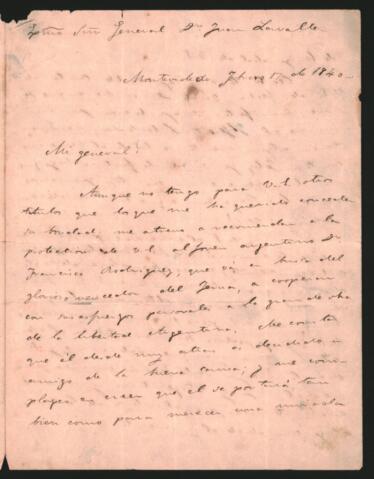 Exmo Sor General Dn Juan Lavalle
Montevideo, 17 de 1840
Mi general!
Aunque no tengo para Vd. otros
titulos que los que me ha querido conceder
su bondad, me atrevo a recomendar a la
proteccion de Vd. al joven argentino Dn
Francisco Rodriguez, que vá en busca del
glorioso vencedor del Yeruá, a cooperar
con sus esfuerzos personales a la grande obra
de la libertad Argentina. Me consta
que él desde muy atras es decidido
amigo de la buena causa; y me com
plazco en creer que el se portará tan
bien como para merecer una mirada